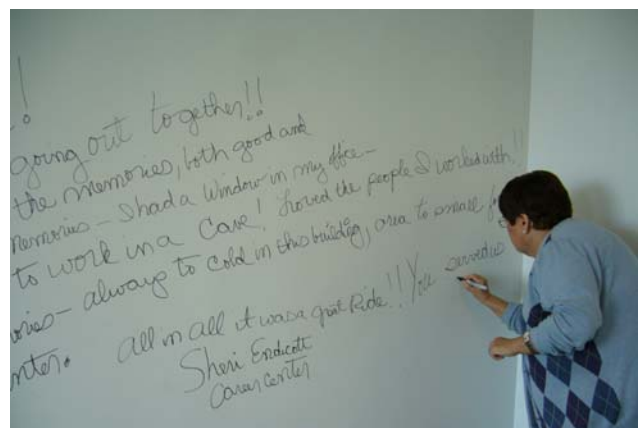 !
going out together!!
the memories, both good and
memories - I had a Window in my office -
to work in a Cave! Loved the people I worked with!!
ories - always to cold in this building, area to small f
nter. all in all it was a great Ride!! You served us
Sheri Endicott
Career Center